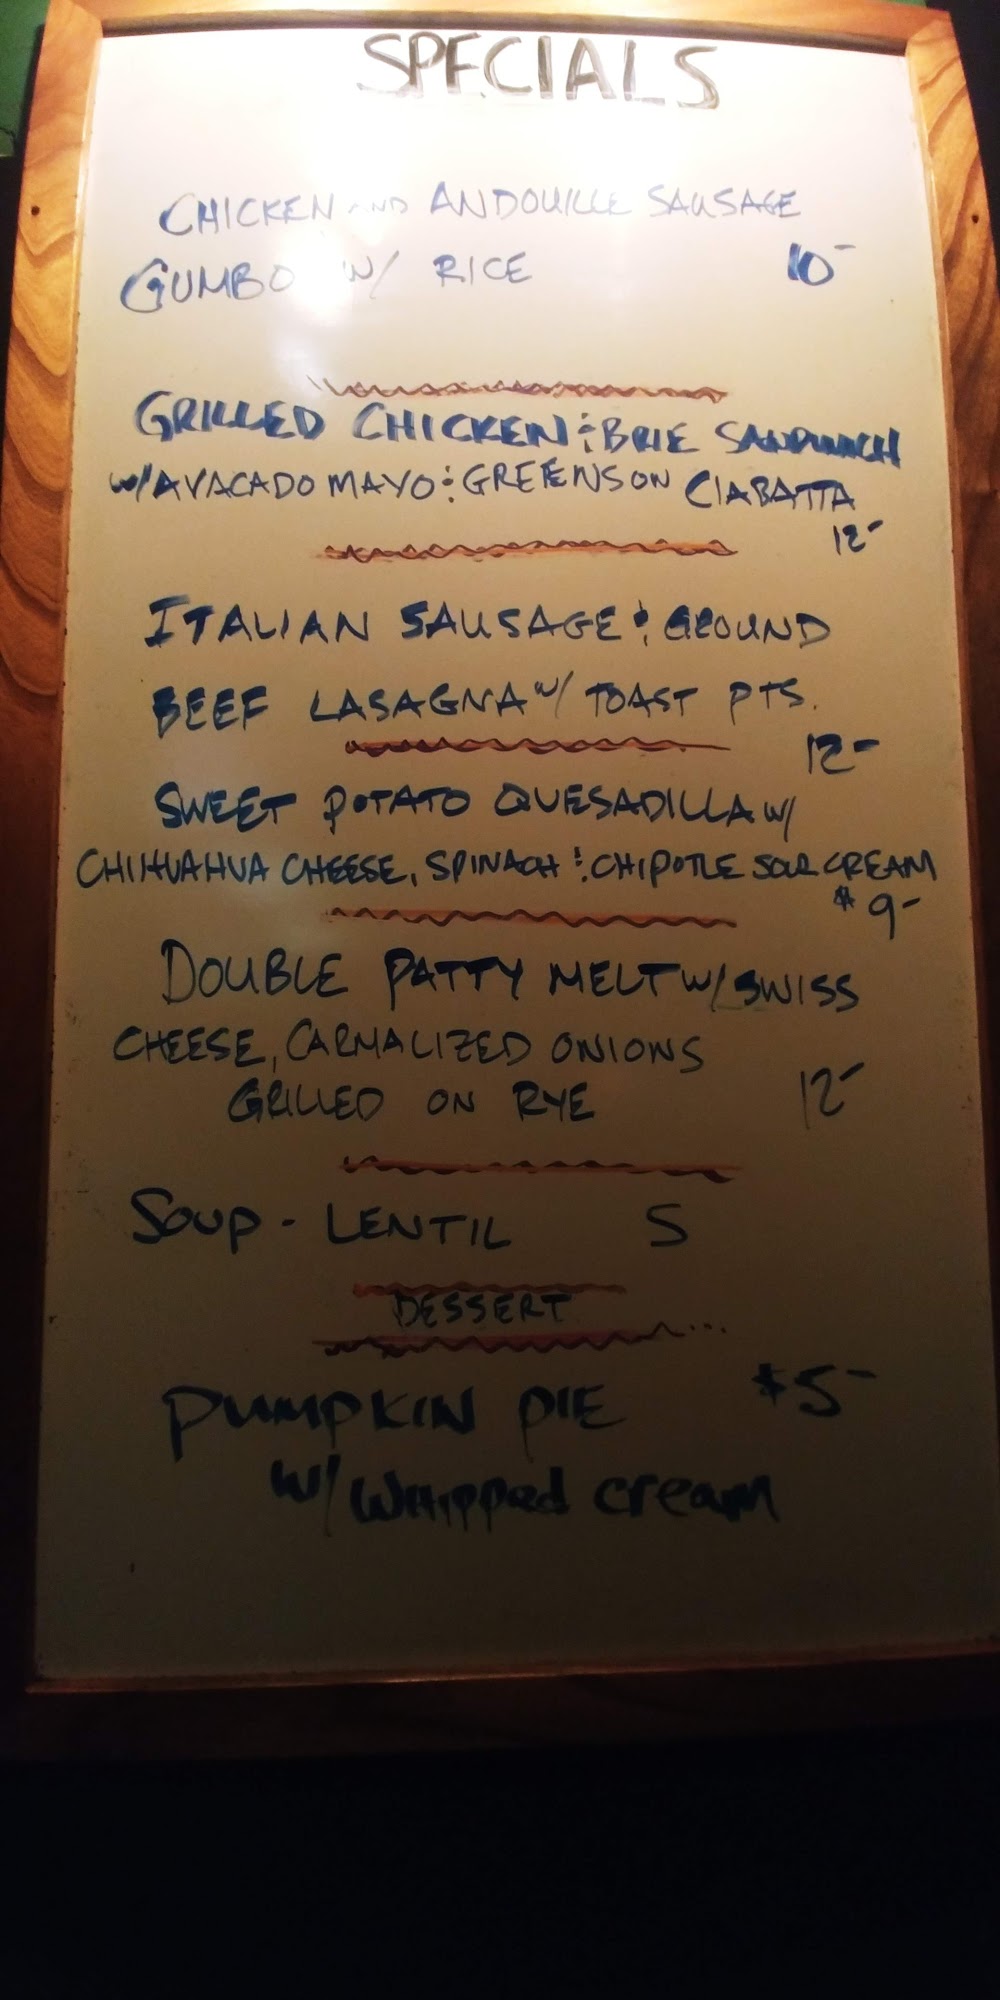 SPECIALS
CHICKEN AND ANDOUILLE SAUSAGE
GUMBO W/ RICE 10-
GRILLED CHICKEN & BRIE SANDWICH
W/ AVACADO MAYO & GREENS ON CIABATTA
12-
ITALIAN SAUSAGE & GROUND
BEEF LASAGNA W/ TOAST PTS.
12-
SWEET POTATO QUESADILLA W/
CHIHUAHUA CHEESE, SPINACH & CHIPOTLE SOUR CREAM
$9-
DOUBLE PATTY MELT W/ SWISS
CHEESE, CARMALIZED ONIONS
GRILLED ON RYE 12-
SOUP - LENTIL 5
DESSERT
PUMPKIN PIE $5-
W/ WHIPPED CREAM